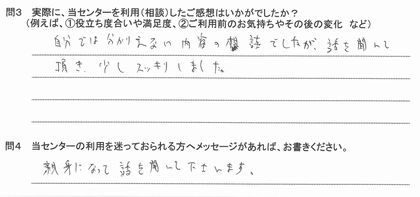 問3 実際に、当センターを利用(相談)したご感想はいかがでしたか？
(例えば、①役立ち度合いや満足度、②ご利用前のお気持ちやその後の変化 など)
自分では分かりえない内容の相談でしたが、話を聞いて
頂き、少しスッキリしました。
問4 当センターの利用を迷っておられる方へメッセージがあれば、お書きください。
親身になって話を聞いて下さいます。